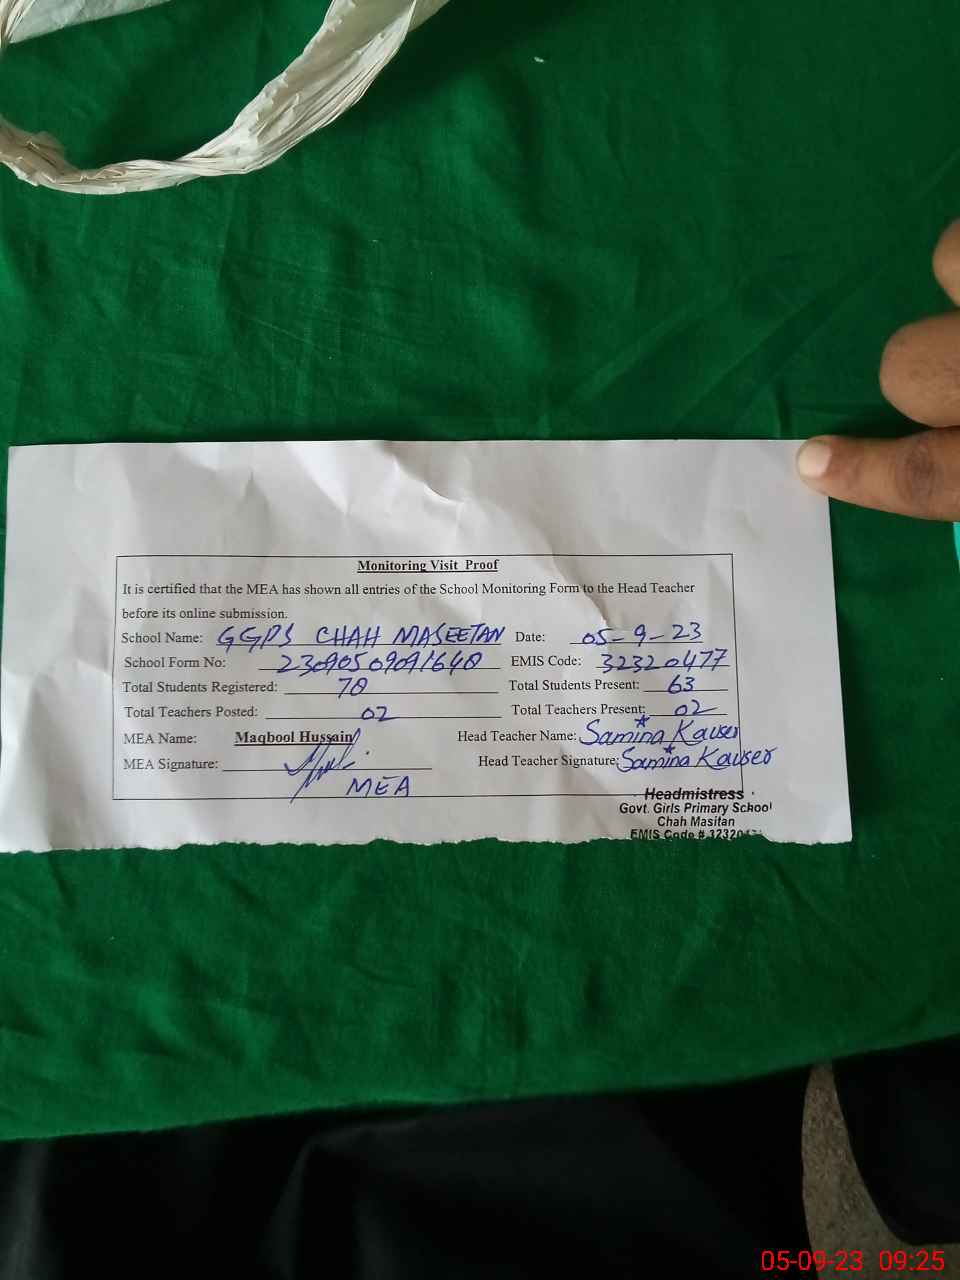 Monitoring Visit Proof
It is certified that the MEA has shown all entries of the School Monitoring Form to the Head Teacher
before its online submission.
School Name: GGPS CHAH MASEETAN Date: 05-9-23
School Form No: 23090509091640 EMIS Code: 32320477
Total Students Registered: 70 Total Students Present: 63
Total Teachers Posted: 02 Total Teachers Present: 02
MEA Name: Maqbool Hussain Head Teacher Name: Samina Kauser
MEA Signature: Head Teacher Signature: Samina Kauser
MEA
Headmistress
Govt. Girls Primary School
Chah Masitan
EMIS Code #
05-09-23 09:25